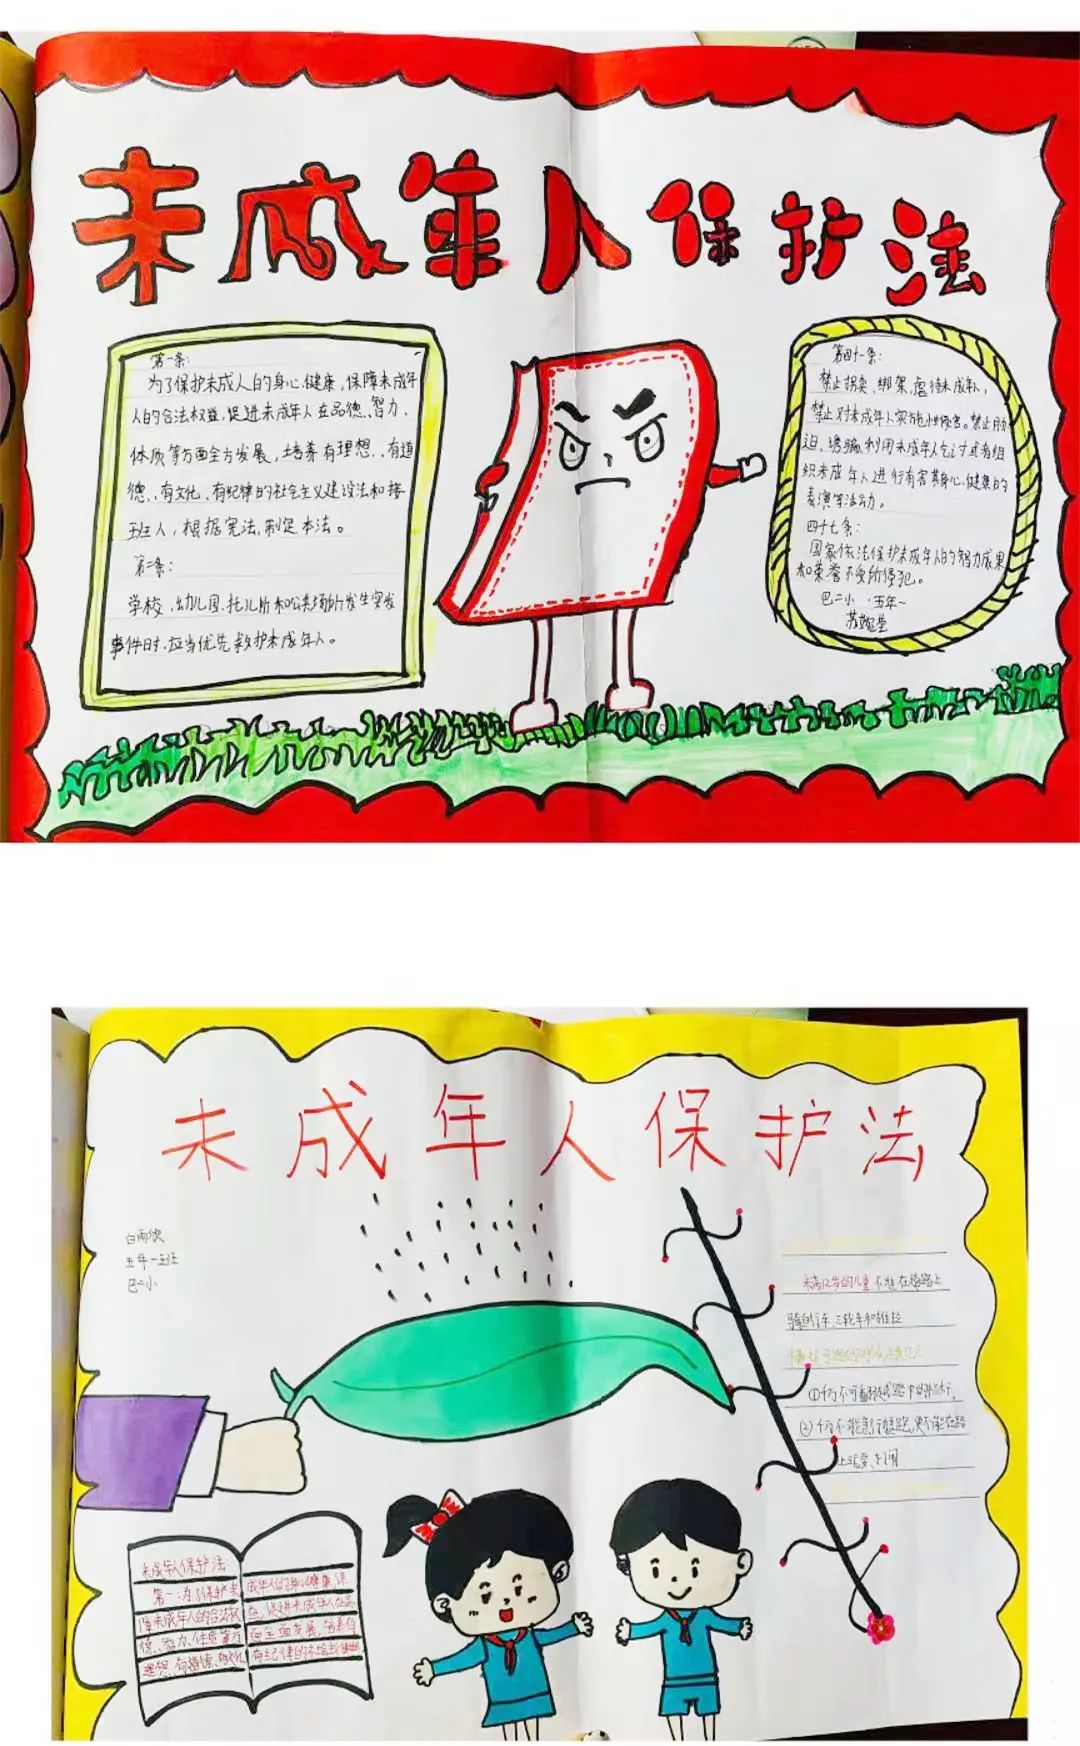 未成年人保护法
第一条:
为了保护未成人的身心健康,保障未成年
人的合法权益,促进未成年人在品德、智力、
体质等方面全方发展,培养有理想、有道
德、有文化、有纪律的社会主义建设法和接
班人,根据宪法,制定本法。
第二条:
学校、幼儿园、托儿所和公共场所发生突发
事件时,应当优先救护未成年人。
第四十一条:
禁止拐卖、绑架,虐待未成年人,
禁止对未成年人实施性侵害。禁止胁
迫、诱骗,利用未成年人乞讨或者组
织未成年人进行有害其身心健康的
表演等活动。
四十七条:
国家依法保护未成年人的智力成果
和荣誉不受所侵犯。
巴二小 五年一
未成年人保护法
白雨欣
五年一班
巴二小
未满12岁的儿童不准在道路上
骑自行车、三轮车和推拉
①千万不可翻越道路中的
②千万不能
上玩耍、打闹
未成年人保护法
第一:为了保护未
障未成年人的合法权
德、智力、体质等方
理想、有道德、有文化
成年人的身心健康,保
益,促进未成年人在品
面全面发展,培养有
有纪律的